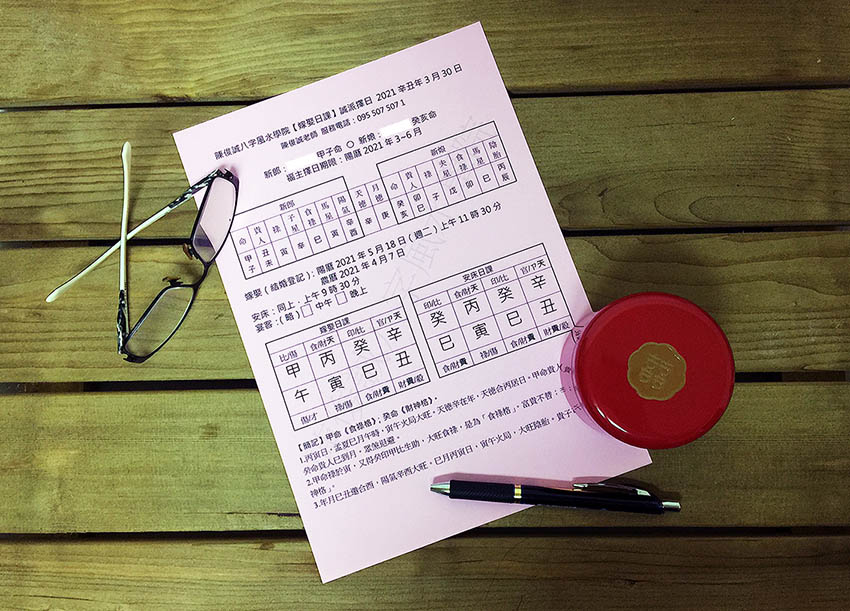 陳俊誠八字風水學院【嫁娶日課】誠派擇日 2021 辛丑年 3 月 30 日
陳俊誠老師 服務電話：095 507 507 1
新郎： 甲子命 〇 新娘： 癸亥命
福主擇日期限：陽曆 2021 年 3-6 月
新郎 新娘
命 貴人 祿 子星 食祿 馬星 陽氣 天德 月德 命 貴人 祿 夫星 食祿 馬星 陰胎
甲子 丑未 寅 辛 巳 寅 辛酉 辛 庚 癸亥 卯巳 子 戊 卯 巳 丙辰
嫁娶（結婚登記）：陽曆 2021 年 5 月 18 日（週二）上午 11 時 30 分
農曆 2021 年 4 月 7 日
安床：同上，上午 9 時 30 分
宴客：（略）□ 中午 □ 晚上
嫁娶日課
比/傷 食/財天 印/比 官/P天
甲 丙 癸 辛
午 寅 巳 丑
傷/才 祿/傷 食/財貴 財貴/殺
安床日課
印/比 食/財天 印/比 官/P天
癸 丙 癸 辛
巳 寅 巳 丑
食/財貴 祿/傷 食/財貴 財貴/殺
【簡記】甲命《食祿格》；癸命《財神格》。
1.丙寅日，孟夏巳月午時，寅午火局大旺，天德辛在年，天德合丙居日，甲命貴人
癸命貴人巳到月，眾煞退避。
2.甲命祿於寅，又得癸印甲比生助，大旺食祿，是為「食祿格」，富貴不替；
神格」。
3.年月巳丑邀合酉，陽氣辛酉大旺，巳月丙寅日，寅午火局，大旺陰胎，貴子